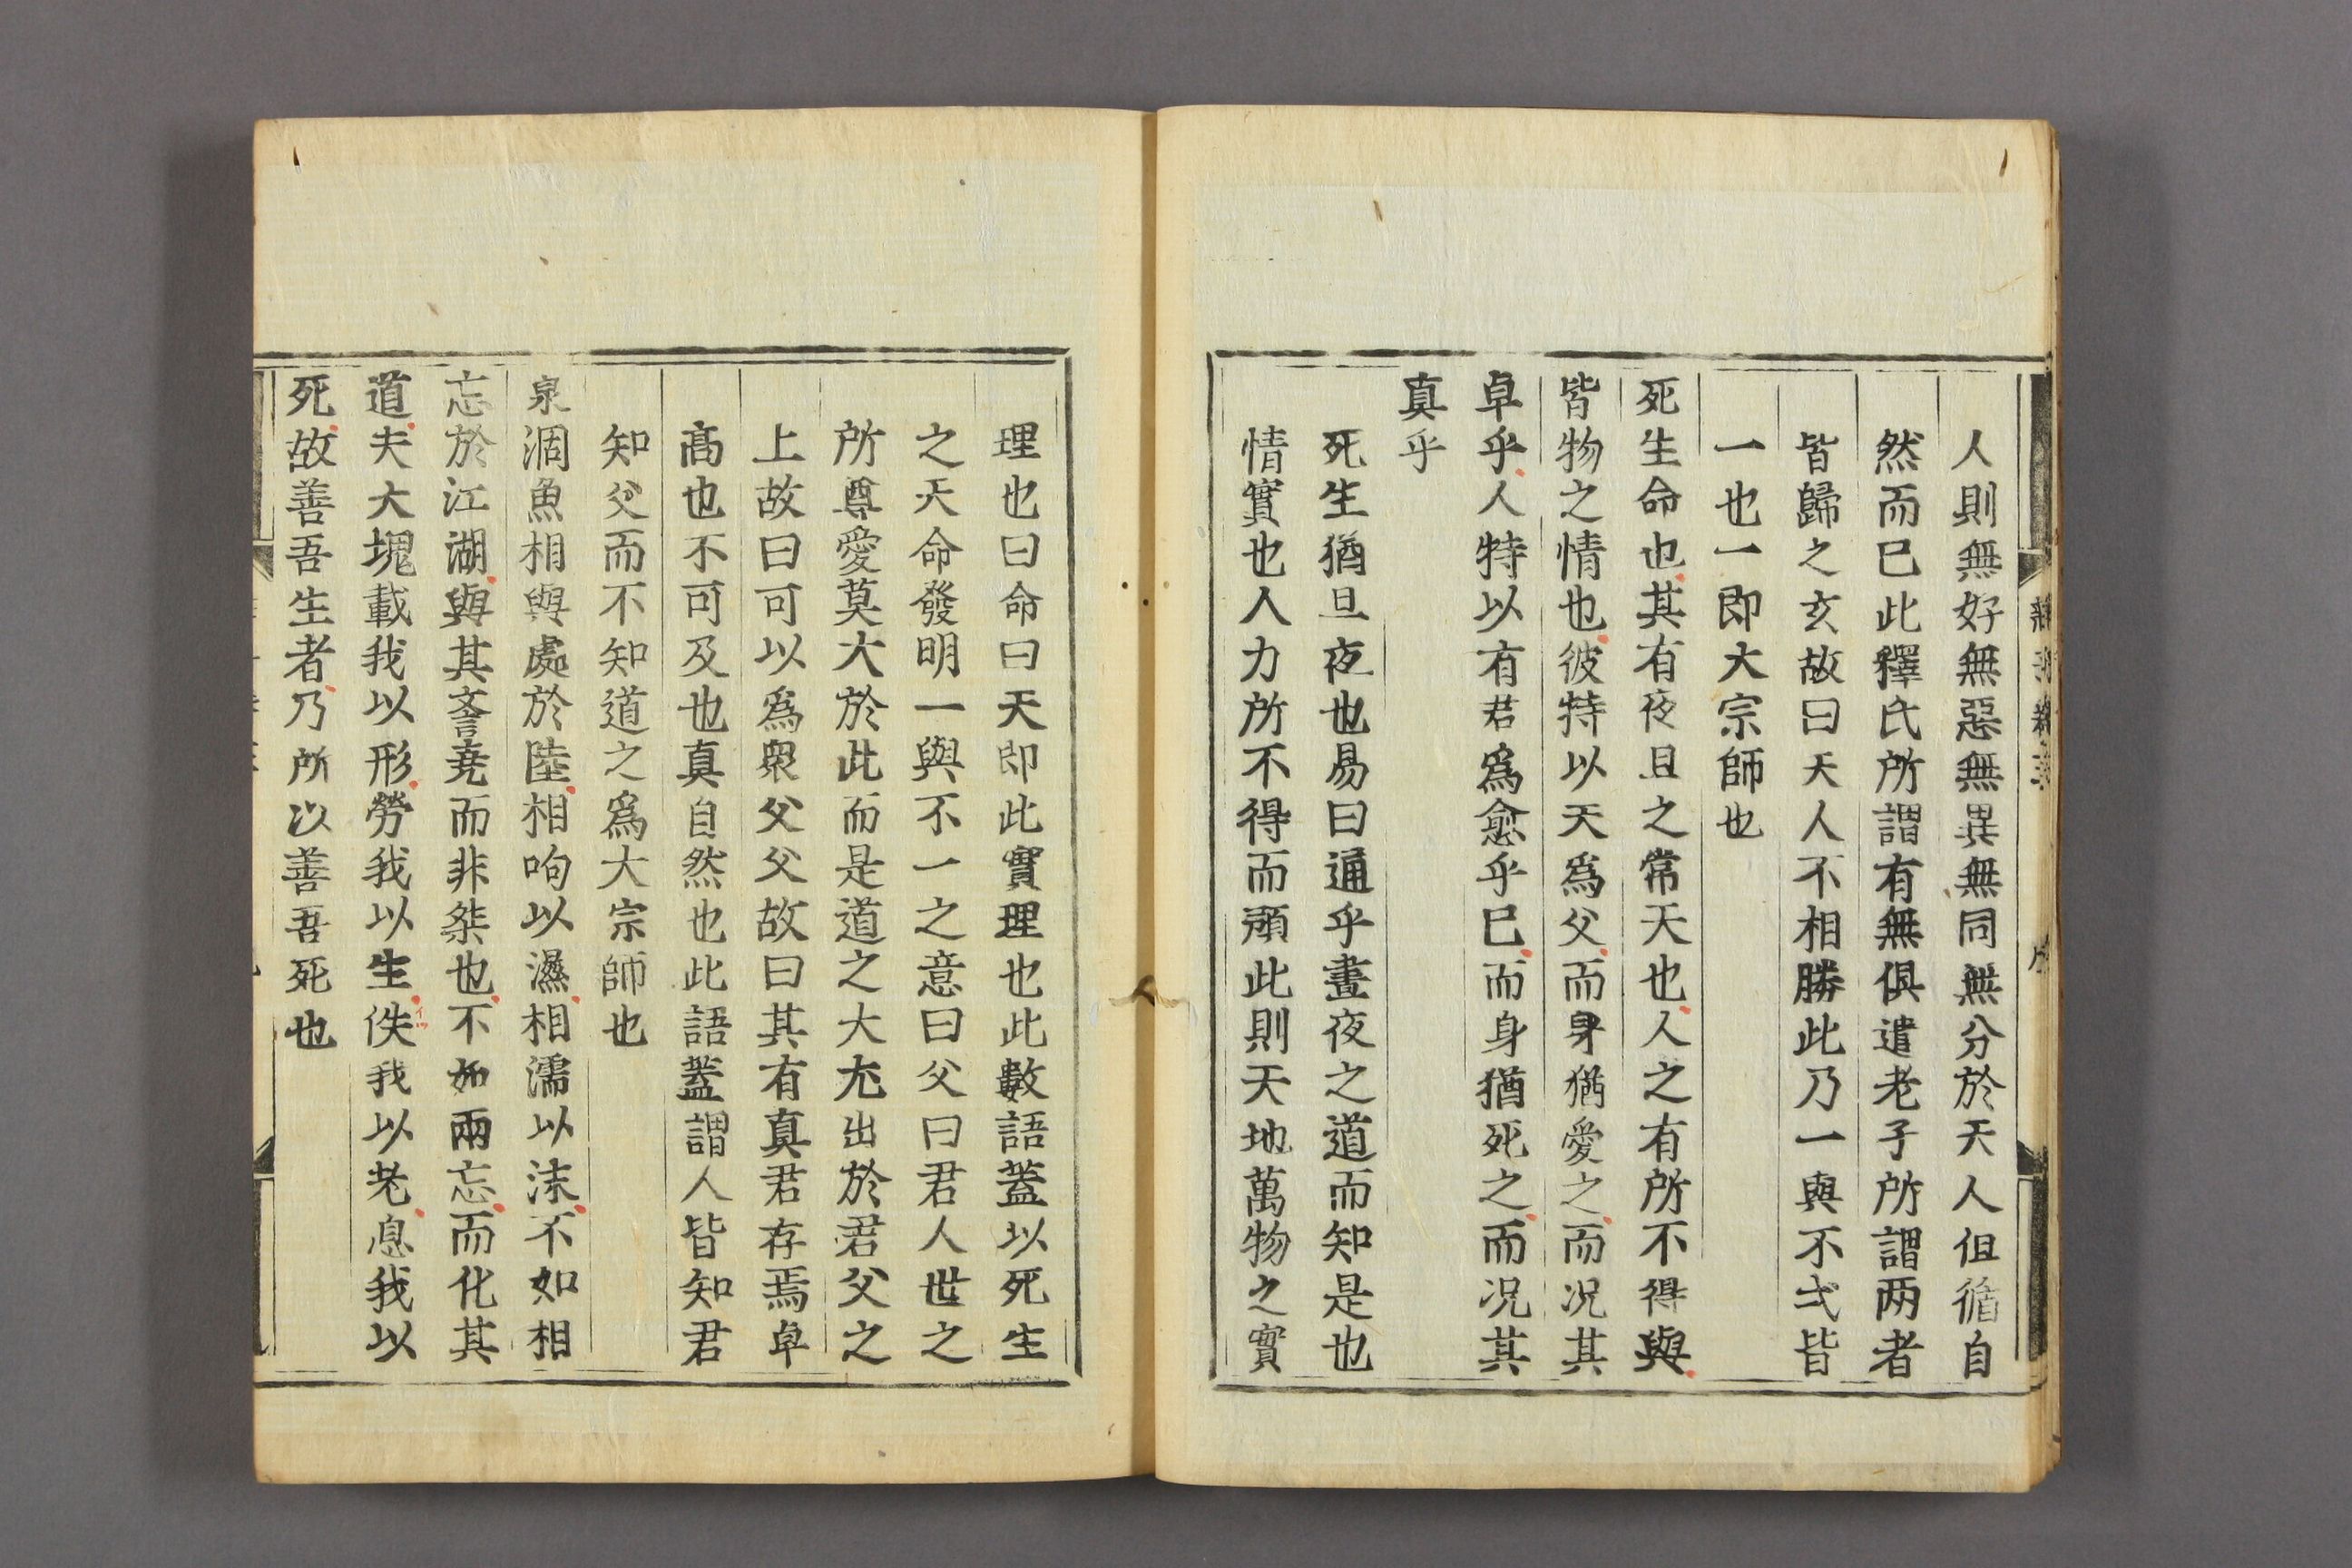 人則無好無惡無異無同無分於天人但循自
然而已此釋氏所謂有無俱遣老子所謂兩者
皆歸之玄故曰天人不相勝此乃一與不弌皆
一也一即大宗師也
死生命也其有夜旦之常天也人之有所不得與
皆物之情也彼特以天爲父而身猶愛之而况其
卓乎人特以有君爲愈乎已而身猶死之而况其
真乎
死生猶旦夜也易曰通乎晝夜之道而知是也
情實也人力所不得而預此則天地萬物之實
理也曰命曰天即此實理也此數語蓋以死生
之天命發明一與不一之意曰父曰君人世之
所尊愛莫大於此而是道之大尤出於君父之
上故曰可以爲衆父父故曰其有真君存焉卓
髙也不可及也真自然也此語蓋謂人皆知君
知父而不知道之爲大宗師也
泉涸魚相與處於陸相呴以濕相濡以沫不如相
忘於江湖與其譽堯而非桀也不如兩忘而化其
道夫大塊載我以形勞我以生佚我以老息我以
死故善吾生者乃所以善吾死也